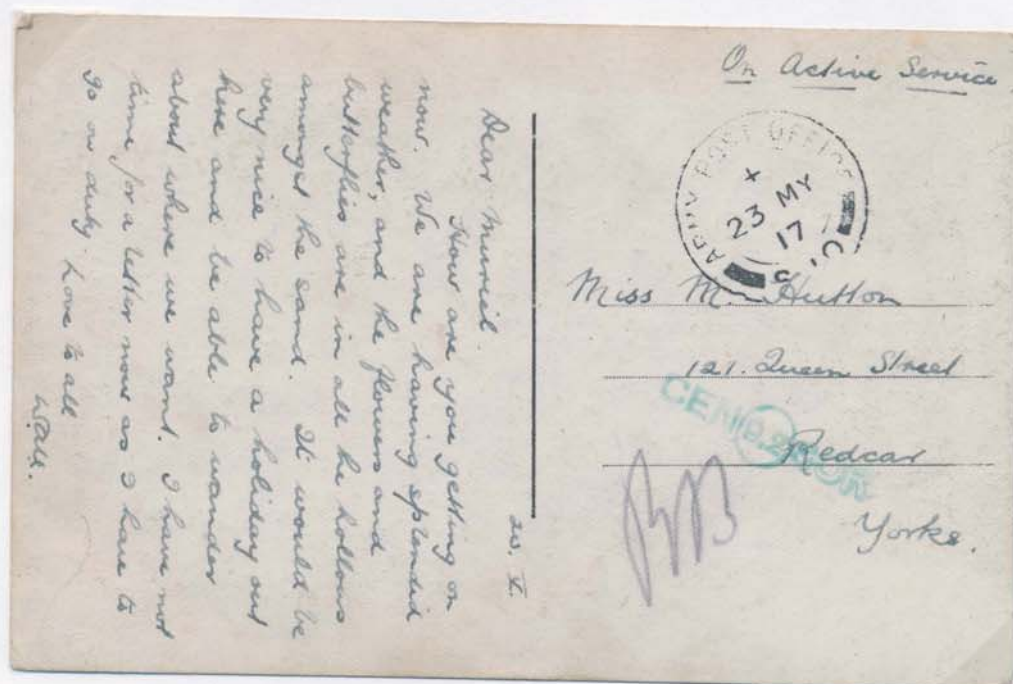 On Active Service
ARMY POST OFFICE
X
23 MY
17
S.10
Miss M. Hutton
121. Queen Street
Redcar
Yorks.
CENSOR
20. V.
Dear Muriel.
How are you getting on
now. We are having splendid
weather, and the flowers and
butterflies are in all the hollows
amongst the sand. It would be
very nice to have a holiday out
here and be able to wander
about where we want. I have not
time for a letter now as I have to
go on duty. Love to all